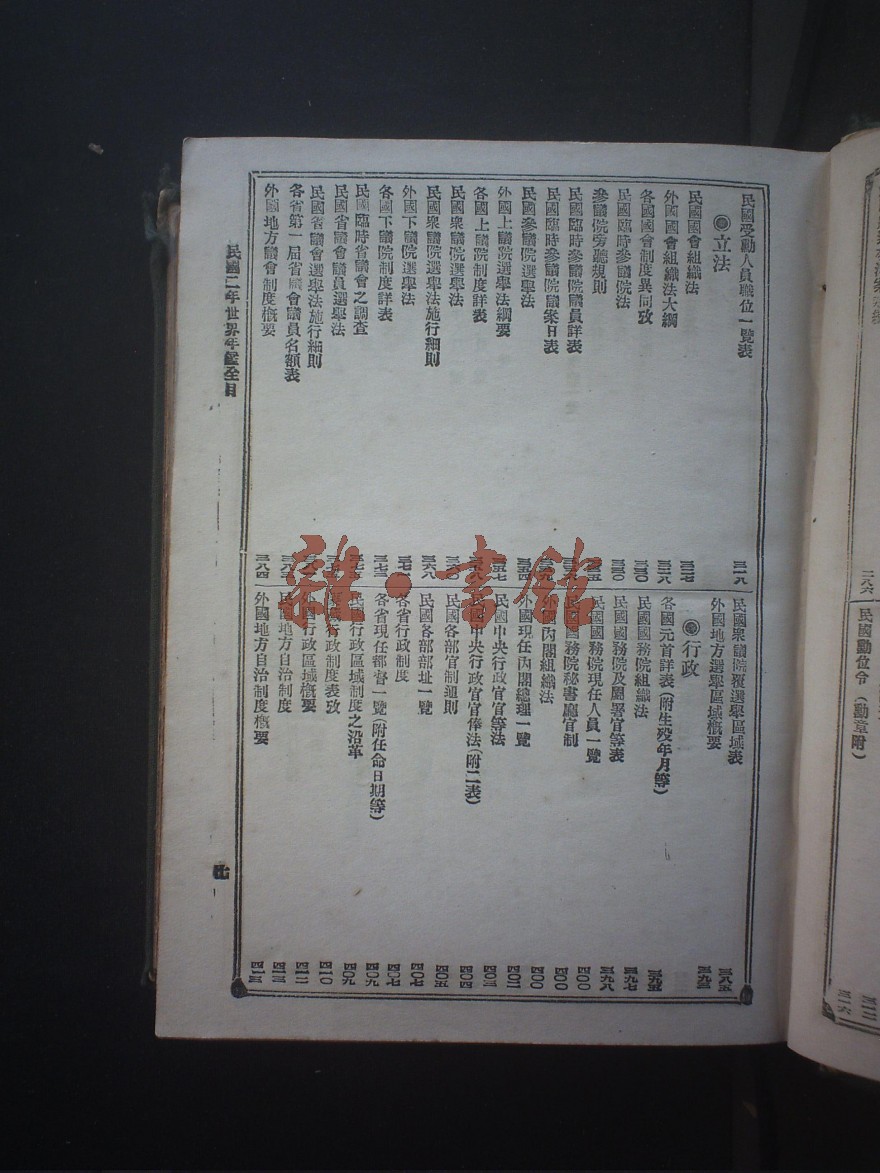 民國受勳人員職位一覽表
◉立法
民國國會組織法
外國國會組織法大綱
各國國會制度異同攷
民國臨時參議院法
參議院旁聽規則
民國臨時參議院議員詳表
民國臨時參議院議案日表
民國參議院選舉法
外國上議院選舉法綱要
各國上議院制度詳表
民國衆議院選舉法
民國衆議院選舉法施行細則
外國下議院選舉法
各國下議院制度詳表
民國臨時省議會之調查
民國省議會議員選舉法
民國省議會選舉法施行細則
各省第一屆省議會議員名額表
外國地方議會制度概要
民國衆議院覆選舉區域表 三八五
外國地方選舉區域概要 三九三
◉行政
各國元首詳表(附生歿年月等) 三九五
民國國務院組織法 三九七
民國國務院及屬署官等表 三九八
民國國務院現任人員一覽 四〇〇
民國國務院秘書廳官制 四〇〇
外國內閣組織法 四〇〇
外國現任內閣總理一覽 四〇二
民國中央行政官官等法 四〇三
民國中央行政官官俸法(附二表) 四〇四
民國各部官制通則 四〇五
民國各部部址一覽 四〇七
各省行政制度 四〇七
各省現任都督一覽(附任命日期等) 四〇九
民國行政區域制度之沿革 四〇九
行政制度表攷 四一〇
外國行政區域概要 四一二
民國地方自治制度 四一三
外國地方自治制度概要 四一三
民國二年世界年鑑全目
七
雜·書館
民國勳位令(勳章附)